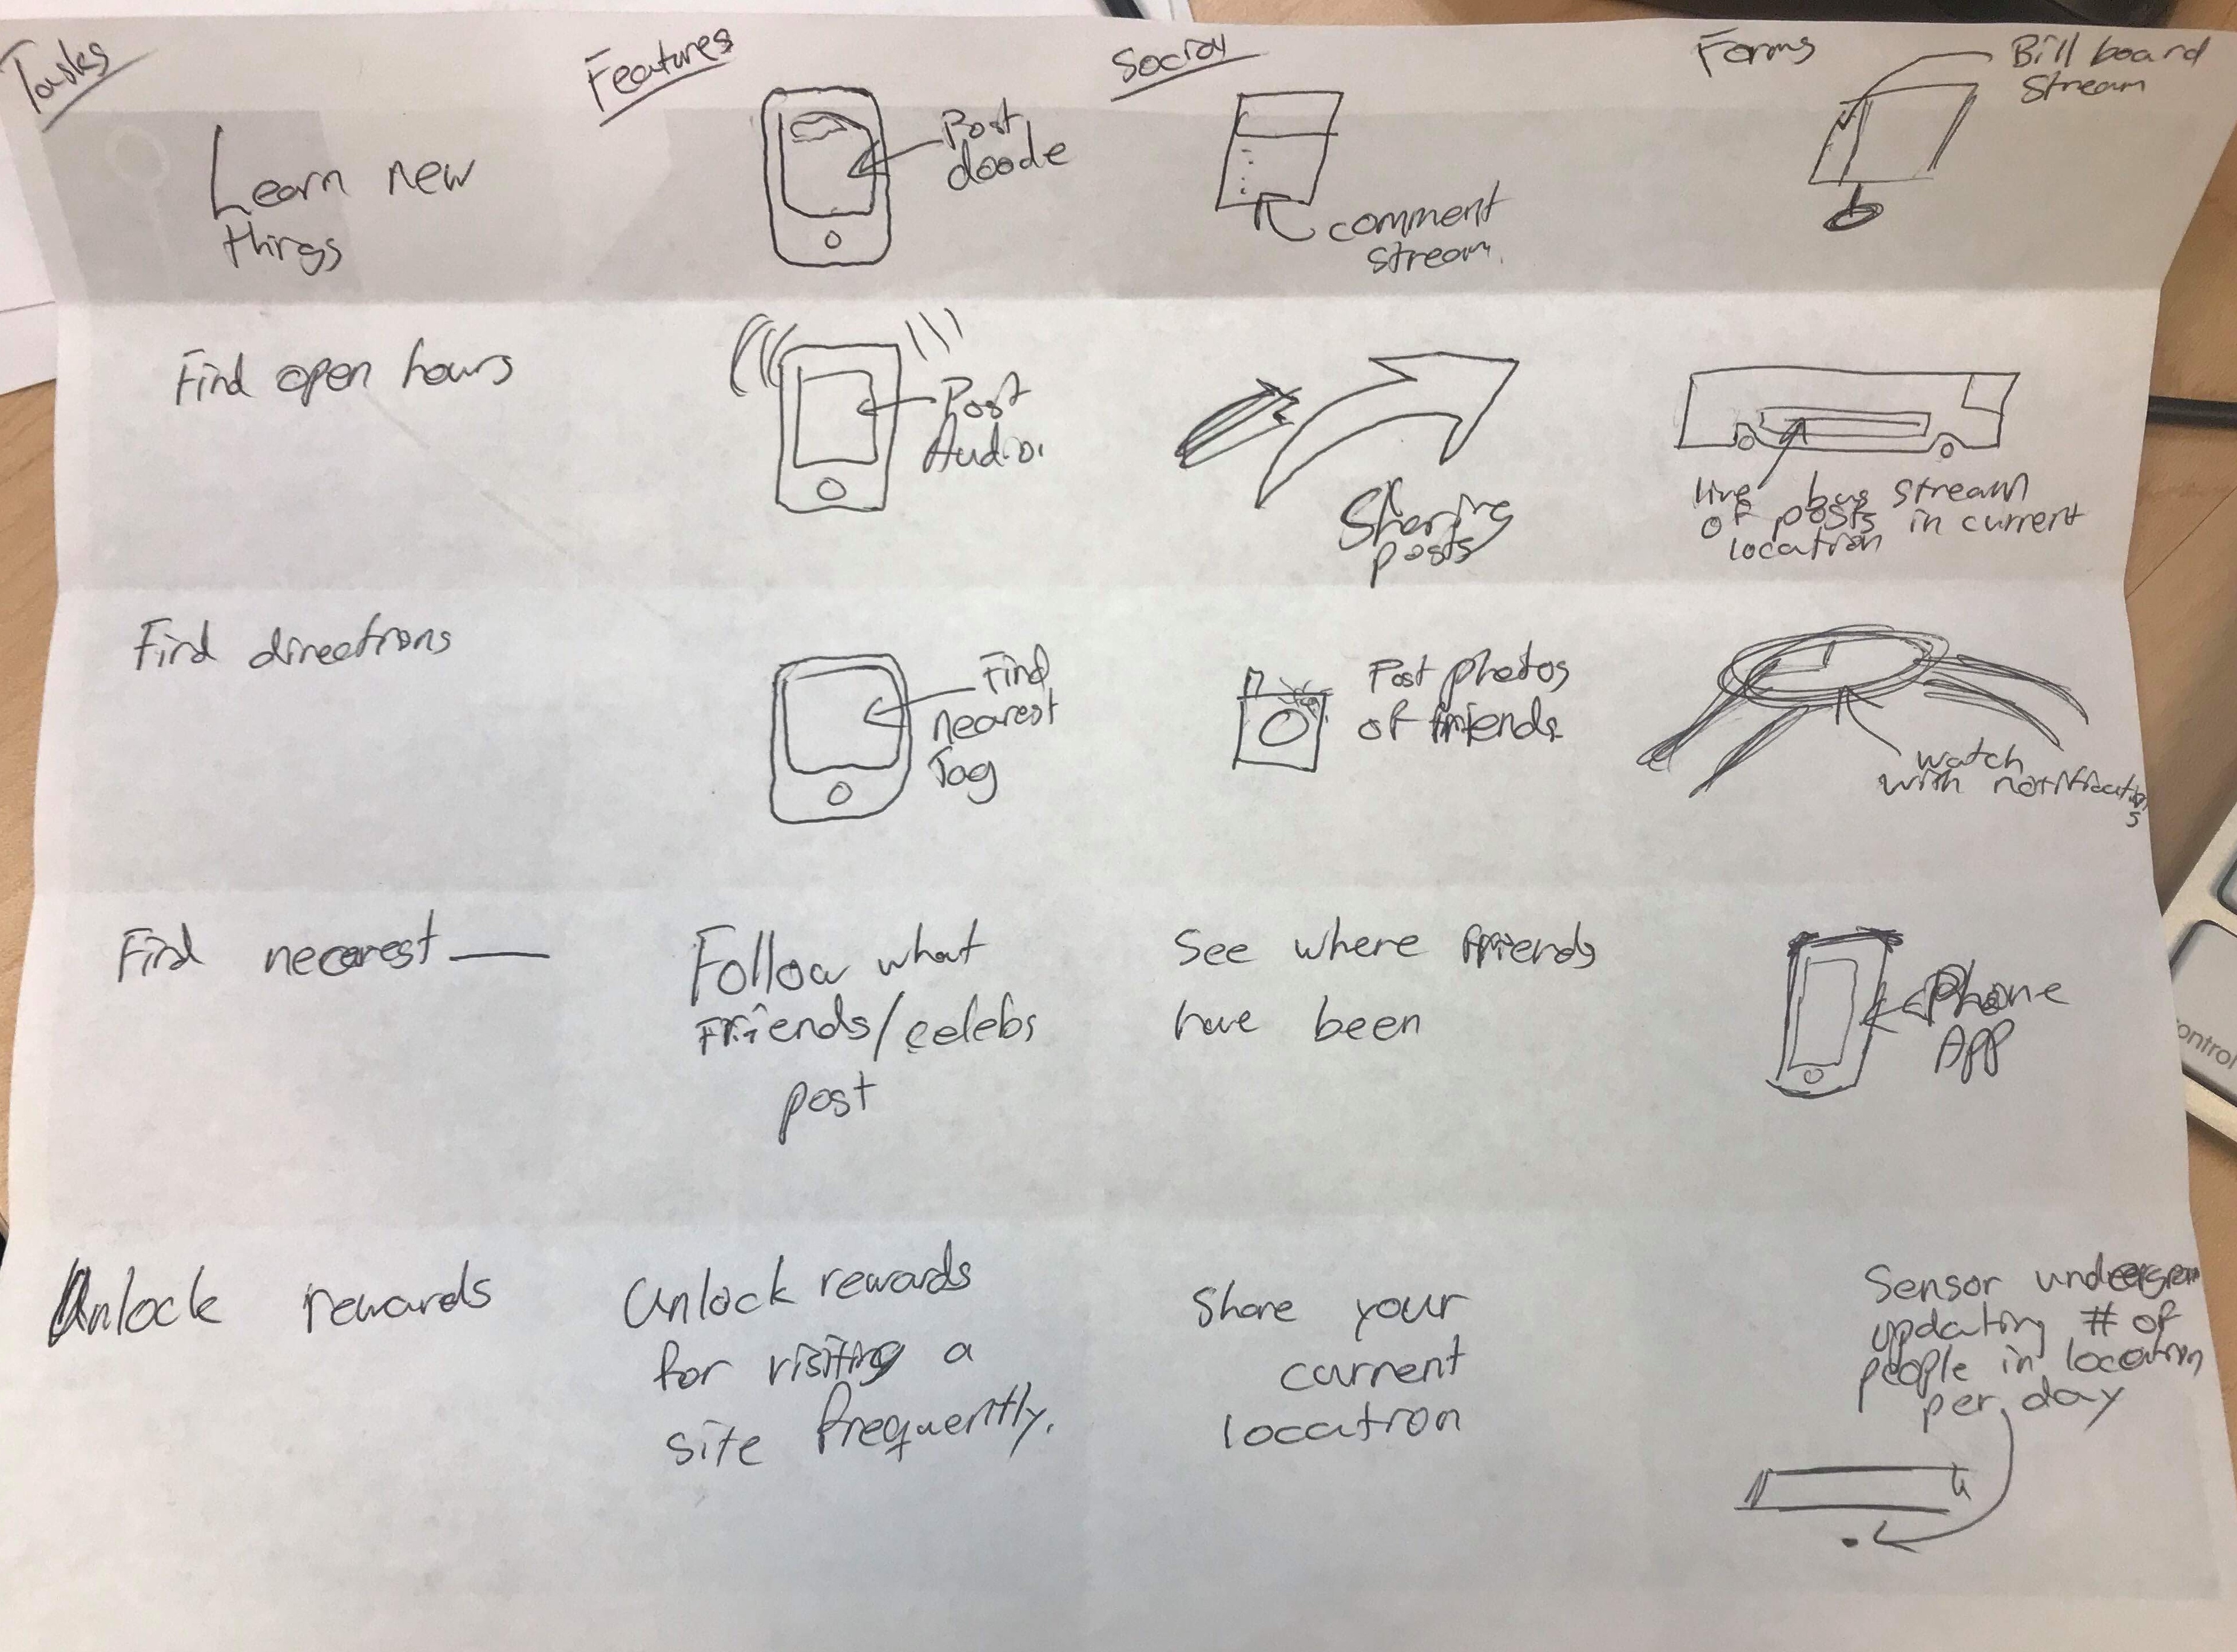 Tasks
Features
Social
Forms
Bill board
stream
Learn new
things
Post
doode
comment
stream.
Find open hours
Post
Audio.
Sharing
posts
live bus stream
of posts in current
location
Find directions
Find
nearest
Tag
Post photos
of friends
watch
with notifications
Find nearest
Follow what
Friends/celebs
post
See where friends
have been
Phone
App
Unlock rewards
Unlock rewards
for visiting a
site frequently.
Share your
current
location
Sensor
updating # of
people in location
per day
ontrol